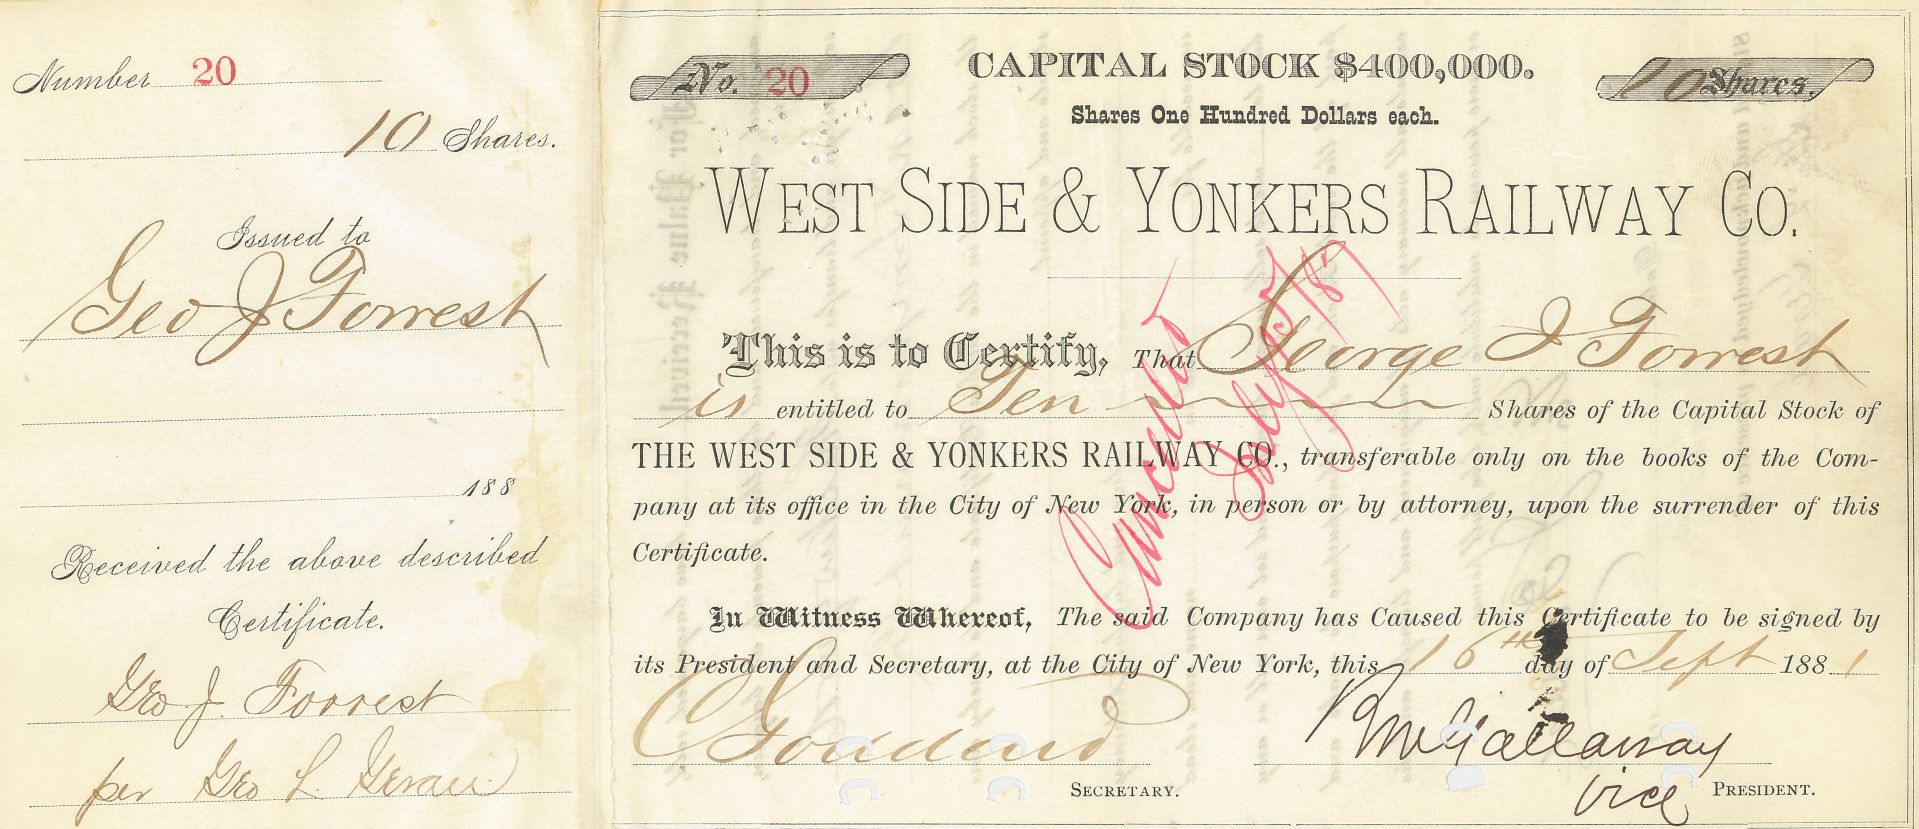 Number 20
10 Shares.
Issued to
Geo J Forrest
188
Received the above described
Certificate.
Geo J. Forrest
per Geo L.
No. 20
CAPITAL STOCK $400,000.
10 Shares.
Shares One Hundred Dollars each.
WEST SIDE & YONKERS RAILWAY CO.
This is to Certify, That George J Forrest
is entitled to Ten Shares of the Capital Stock of
THE WEST SIDE & YONKERS RAILWAY CO., transferable only on the books of the Com-
pany at its office in the City of New York, in person or by attorney, upon the surrender of this
Certificate.
In Witness Whereof, The said Company has Caused this Certificate to be signed by
its President and Secretary, at the City of New York, this 16th day of Sept 1881
RM Gallaway
SECRETARY.
Vice PRESIDENT.
Cancelled
For Value Received